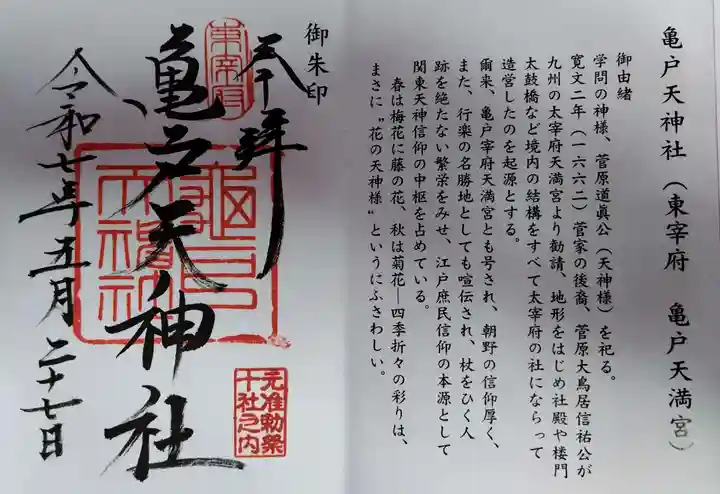 亀戸天神社（東宰府　亀戸天満宮）
御由緒
学問の神様、菅原道眞公（天神様）を祀る。
寛文二年（一六六二）菅家の後裔、菅原大鳥居信祐公が
九州の太宰府天満宮より勧請、地形をはじめ社殿や楼門
太鼓橋など境内の結構をすべて太宰府の社にならって
造営したのを起源とする。
爾来、亀戸宰府天満宮とも号され、朝野の信仰厚く、
また、行楽の名勝地としても喧伝され、杖をひく人
跡を絶たない繁栄をみせ、江戸庶民信仰の本源として
関東天神信仰の中枢を占めている。
春は梅花に藤の花、秋は菊花―四季折々の彩りは、
まさに〝花の天神様〟というにふさわしい。
御朱印
奉拝
東宰府
亀戸天神社
亀戸天神社
元准勅祭
十社之内
令和七年五月二十七日